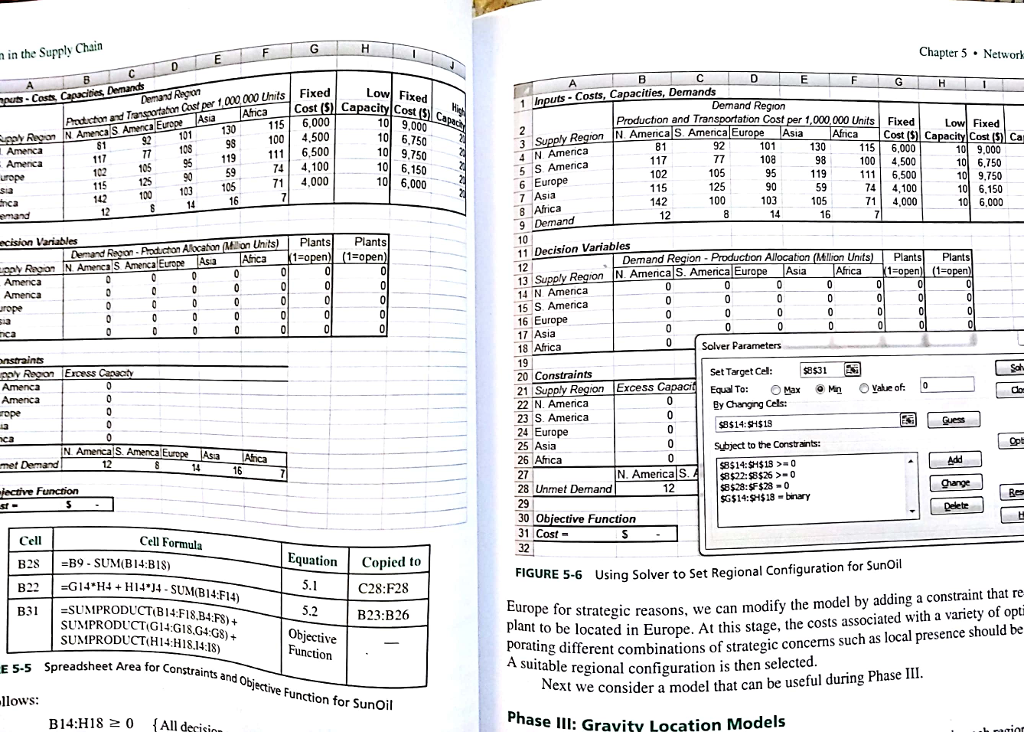 n in the Supply Chain
A B C D E F G H I J
nputs - Costs, Capacities, Demands
Demand Region
Production and Transportation Cost per 1,000,000 Units Fixed Low Fixed High
Supply Region N. America S. America Europe Asia Africa Cost ($) Capacity Cost ($) Capacity
America 81 92 101 130 115 6,000 10 9,000 20
America 117 77 108 98 100 4,500 10 6,750 20
urope 102 105 95 119 111 6,500 10 9,750 20
sia 115 125 90 59 74 4,100 10 6,150 20
frica 142 100 103 105 71 4,000 10 6,000 20
emand 12 8 14 16 7
ecision Variables
Demand Region - Production Allocation (Million Units) Plants Plants
upply Region N. America S. America Europe Asia Africa (1=open) (1=open)
America 0 0 0 0 0 0 0
America 0 0 0 0 0 0 0
urope 0 0 0 0 0 0 0
sia 0 0 0 0 0 0 0
rica 0 0 0 0 0 0 0
onstraints
pply Region Excess Capacity
America 0
America 0
rope 0
ia 0
ica 0
N. America S. America Europe Asia Africa
met Demand 12 8 14 16 7
jective Function
st = $ -
Cell Cell Formula Equation Copied to
B28 =B9 - SUM(B14:B18) 5.1 C28:F28
B22 =G14*H4 + H14*J4 - SUM(B14:F14) 5.2 B23:B26
B31 =SUMPRODUCT(B14:F18,B4:F8) +
SUMPRODUCT(G14:G18,G4:G8) +
SUMPRODUCT(H14:H18,I4:I8) Objective Function —
E 5-5 Spreadsheet Area for Constraints and Objective Function for SunOil
llows:
B14:H18 ≥ 0 {All decision
Chapter 5 • Network
A B C D E F G H I
1 Inputs - Costs, Capacities, Demands
Demand Region
2 Production and Transportation Cost per 1,000,000 Units Fixed Low Fixed
3 Supply Region N. America S. America Europe Asia Africa Cost ($) Capacity Cost ($) Ca
4 N. America 81 92 101 130 115 6,000 10 9,000
5 S. America 117 77 108 98 100 4,500 10 6,750
6 Europe 102 105 95 119 111 6,500 10 9,750
7 Asia 115 125 90 59 74 4,100 10 6,150
8 Africa 142 100 103 105 71 4,000 10 6,000
9 Demand 12 8 14 16 7
10
11 Decision Variables
12 Demand Region - Production Allocation (Million Units) Plants Plants
13 Supply Region N. America S. America Europe Asia Africa (1=open) (1=open)
14 N. America 0 0 0 0 0 0 0
15 S. America 0 0 0 0 0 0 0
16 Europe 0 0 0 0 0 0 0
17 Asia 0 0 0 0 0 0 0
18 Africa 0
19
20 Constraints
21 Supply Region Excess Capacit
22 N. America 0
23 S. America 0
24 Europe 0
25 Asia 0
26 Africa 0
27 N. America S. A
28 Unmet Demand 12
29
30 Objective Function
31 Cost = $ -
32
Solver Parameters
Set Target Cell: $B$31
Equal To: Max Min Value of: 0
By Changing Cells:
$B$14:$H$18 Guess
Subject to the Constraints:
$B$14:$H$18 >= 0
$B$22:$B$26 >= 0
$B$28:$F$28 = 0
$G$14:$H$18 = binary
Add
Change
Delete
Solv
Clo
Opt
Res
H
FIGURE 5-6 Using Solver to Set Regional Configuration for SunOil
Europe for strategic reasons, we can modify the model by adding a constraint that re
plant to be located in Europe. At this stage, the costs associated with a variety of opti
porating different combinations of strategic concerns such as local presence should be
A suitable regional configuration is then selected.
Next we consider a model that can be useful during Phase III.
Phase III: Gravity Location Models